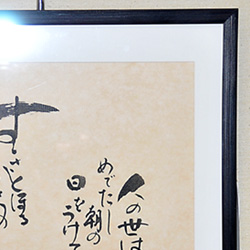 人の世は
めでたし
朝の
日をうけて
すきとほる